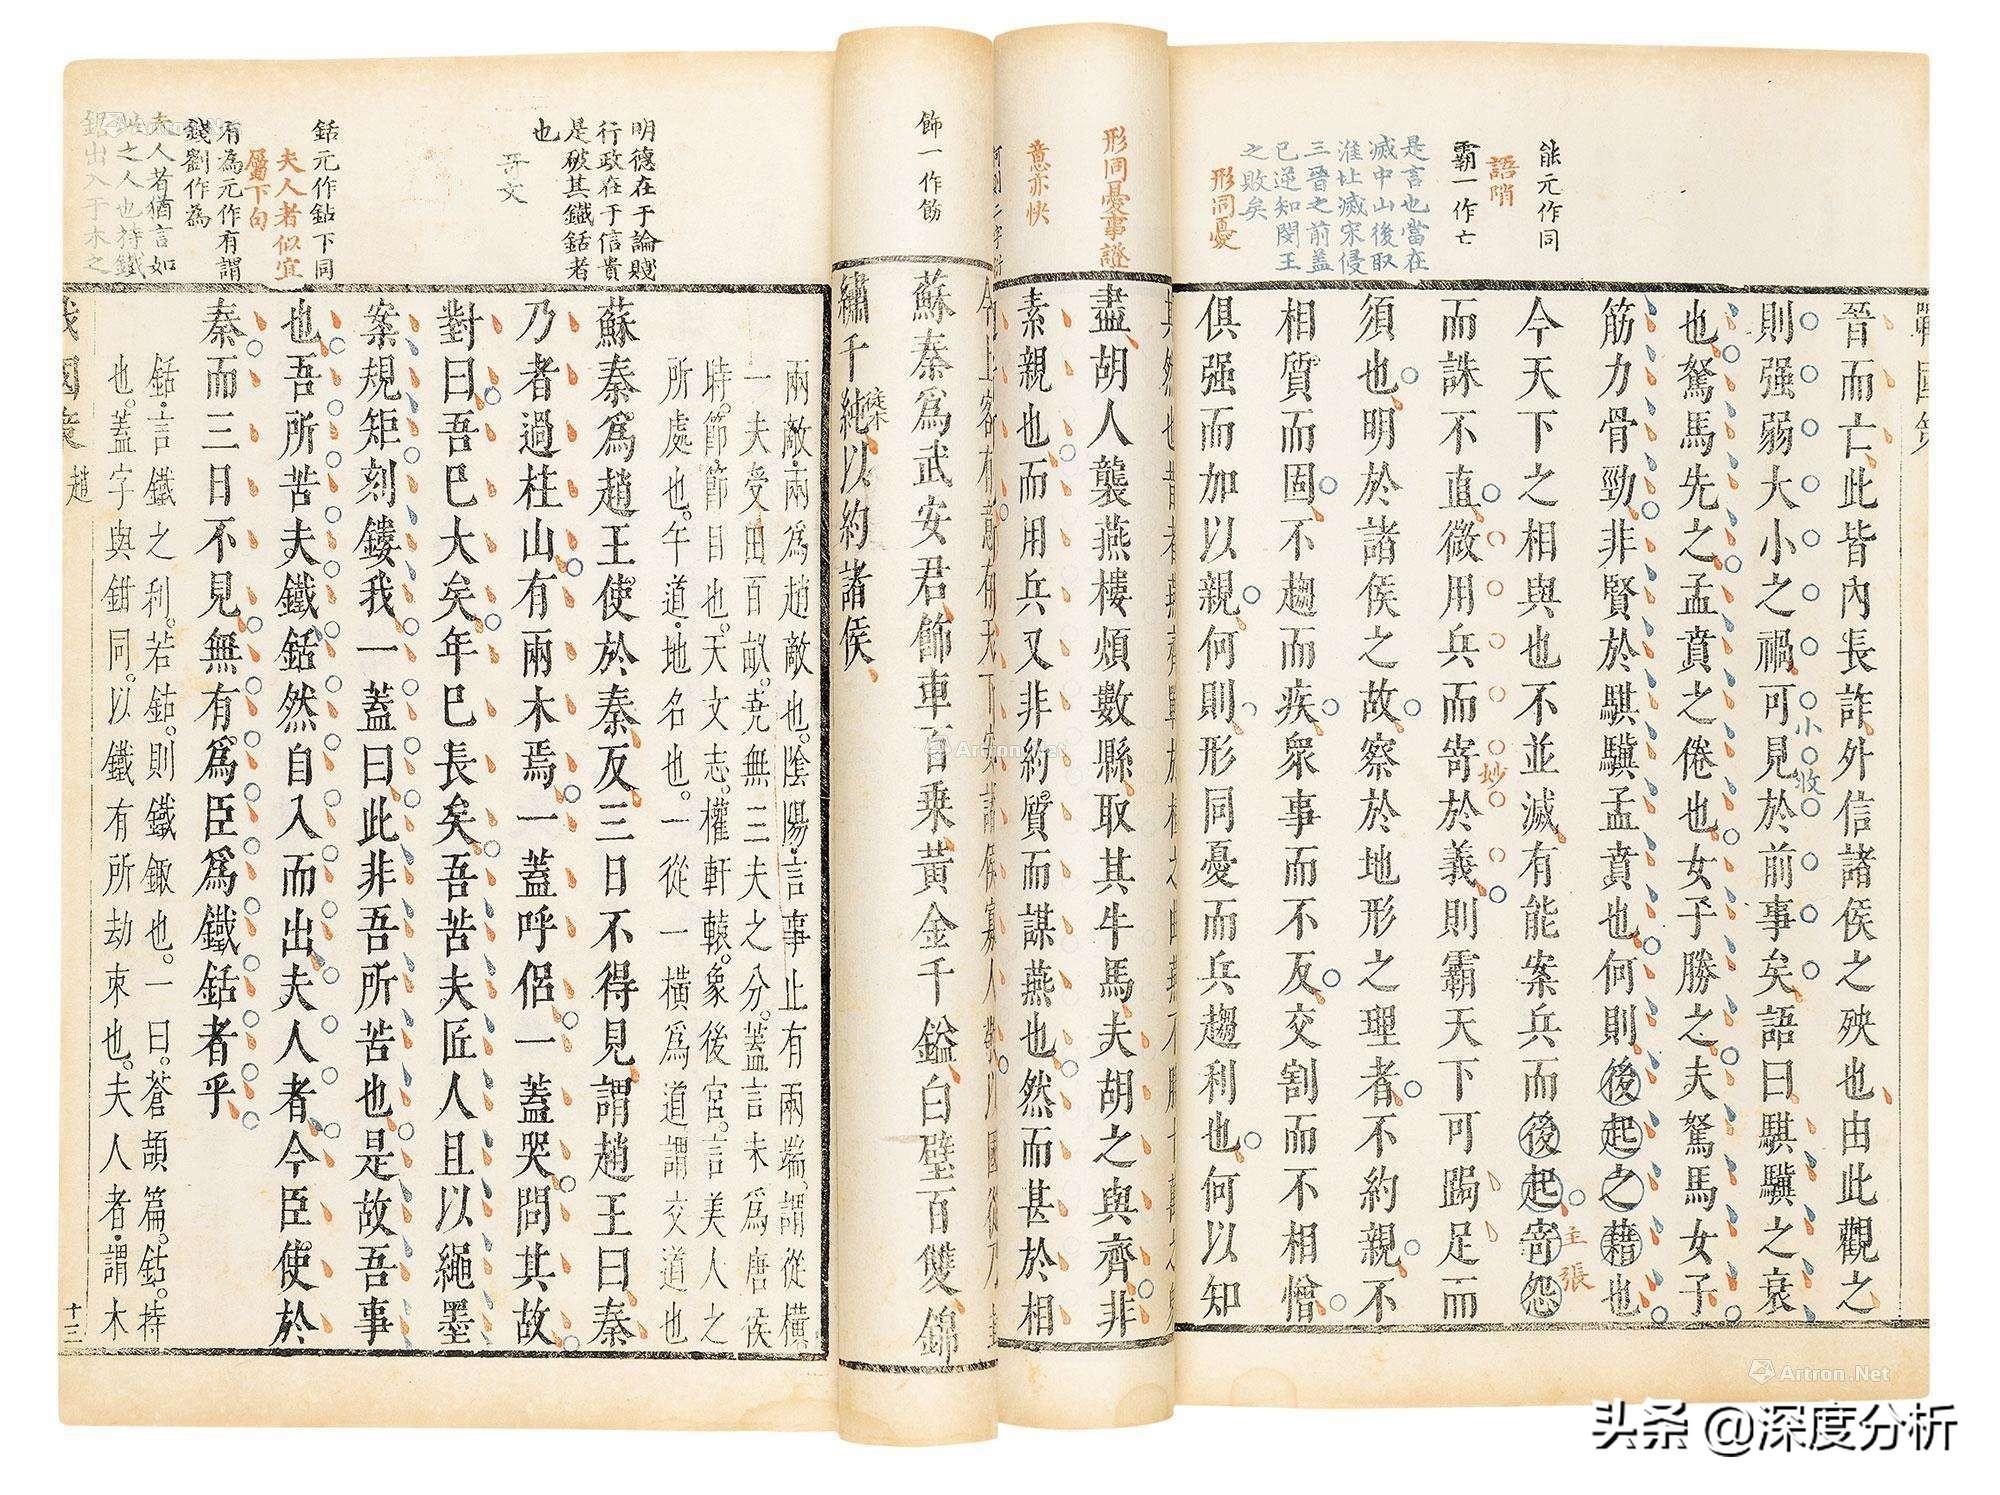 能元作同
語啃
霸一作亡
是言也當在
滅中山後取
淮北滅宋侵
三晉之前蓋
已逆知閔王
之敗矣
形同憂
戰國策
晉而亡此皆內長詐外信諸侯之殃也由此觀之
則强弱大小之禍可見於前事矣語曰騏驥之衰
小收
也駑馬先之孟賁之倦也女子勝之夫駑馬女子
筋力骨勁非賢於騏驥孟賁也何則後起之藉也
今天下之相與也不並滅有能案兵而後起寄怨
主張
而誅不直微用兵而寄於義則霸天下可跼足而
妙
須也明於諸侯之故察於地形之理者不約親不
相質而固不趨而疾衆事而不反交割而不相憎
俱强而加以親何則形同憂而兵趨利也何以知
形同憂事證
意亦快
盡胡人襲燕樓煩數縣取其牛馬夫胡之與齊非
素親也而用兵又非約質而謀燕也然而甚於相
飾一作飭
蘇秦爲武安君飾車百乘黃金千鎰白璧百雙錦
繡千純以約諸侯
明德在于論賤
行政在于信貴
是破其鐵銛者
也
奇文
銛元作鉆下同
夫人者似宜
屬下句
有為元作有謂
錢劉作為
夫人者猶言如
此之人也持鐵
銛出入于木之
兩敵兩爲趙敵也陰陽言事止有兩端謂從橫
一夫受田百畝堯無三夫之分蓋言未爲唐侯
時節節目也天文志權軒轅象後宮言美人之
所處也午道地名也一從一橫爲道謂交道也
蘇秦爲趙王使於秦反三日不得見謂趙王曰秦
乃者過柱山有兩木焉一蓋呼侣一蓋哭問其故
對曰吾巳大矣年巳長矣吾苦夫匠人且以繩墨
案規矩刻鏤我一蓋曰此非吾所苦也是故吾事
也吾所苦夫鐵銛然自入而出夫人者今臣使於
秦而三日不見無有爲臣爲鐵銛者乎
銛言鐵之利若鉆則鐵鋷也一曰蒼頡篇鉆持
也蓋字與鉗同以鐵有所劫束也夫人者謂木
戰國策 趙
十三
Artron.Net
Artron.Net
头条 @深度分析